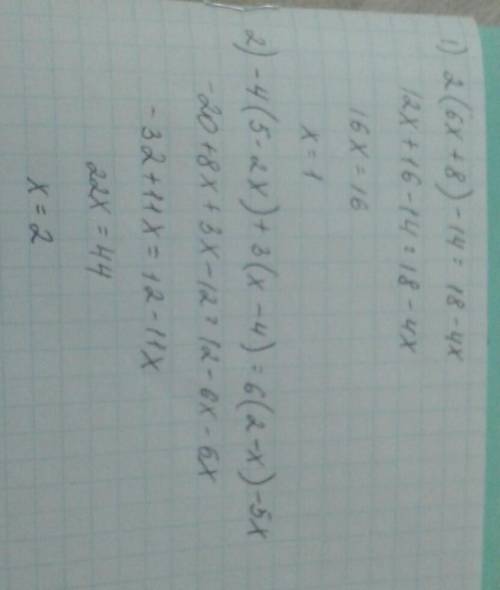 1) 2(6x+8)-14=18-4x
12x+16-14=18-4x
16x=16
x=1
2) -4(5-2x)+3(x-4)=6(2-x)-5x
-20+8x+3x-12=12-6x-5x
-32+11x=12-11x
22x=44
x=2